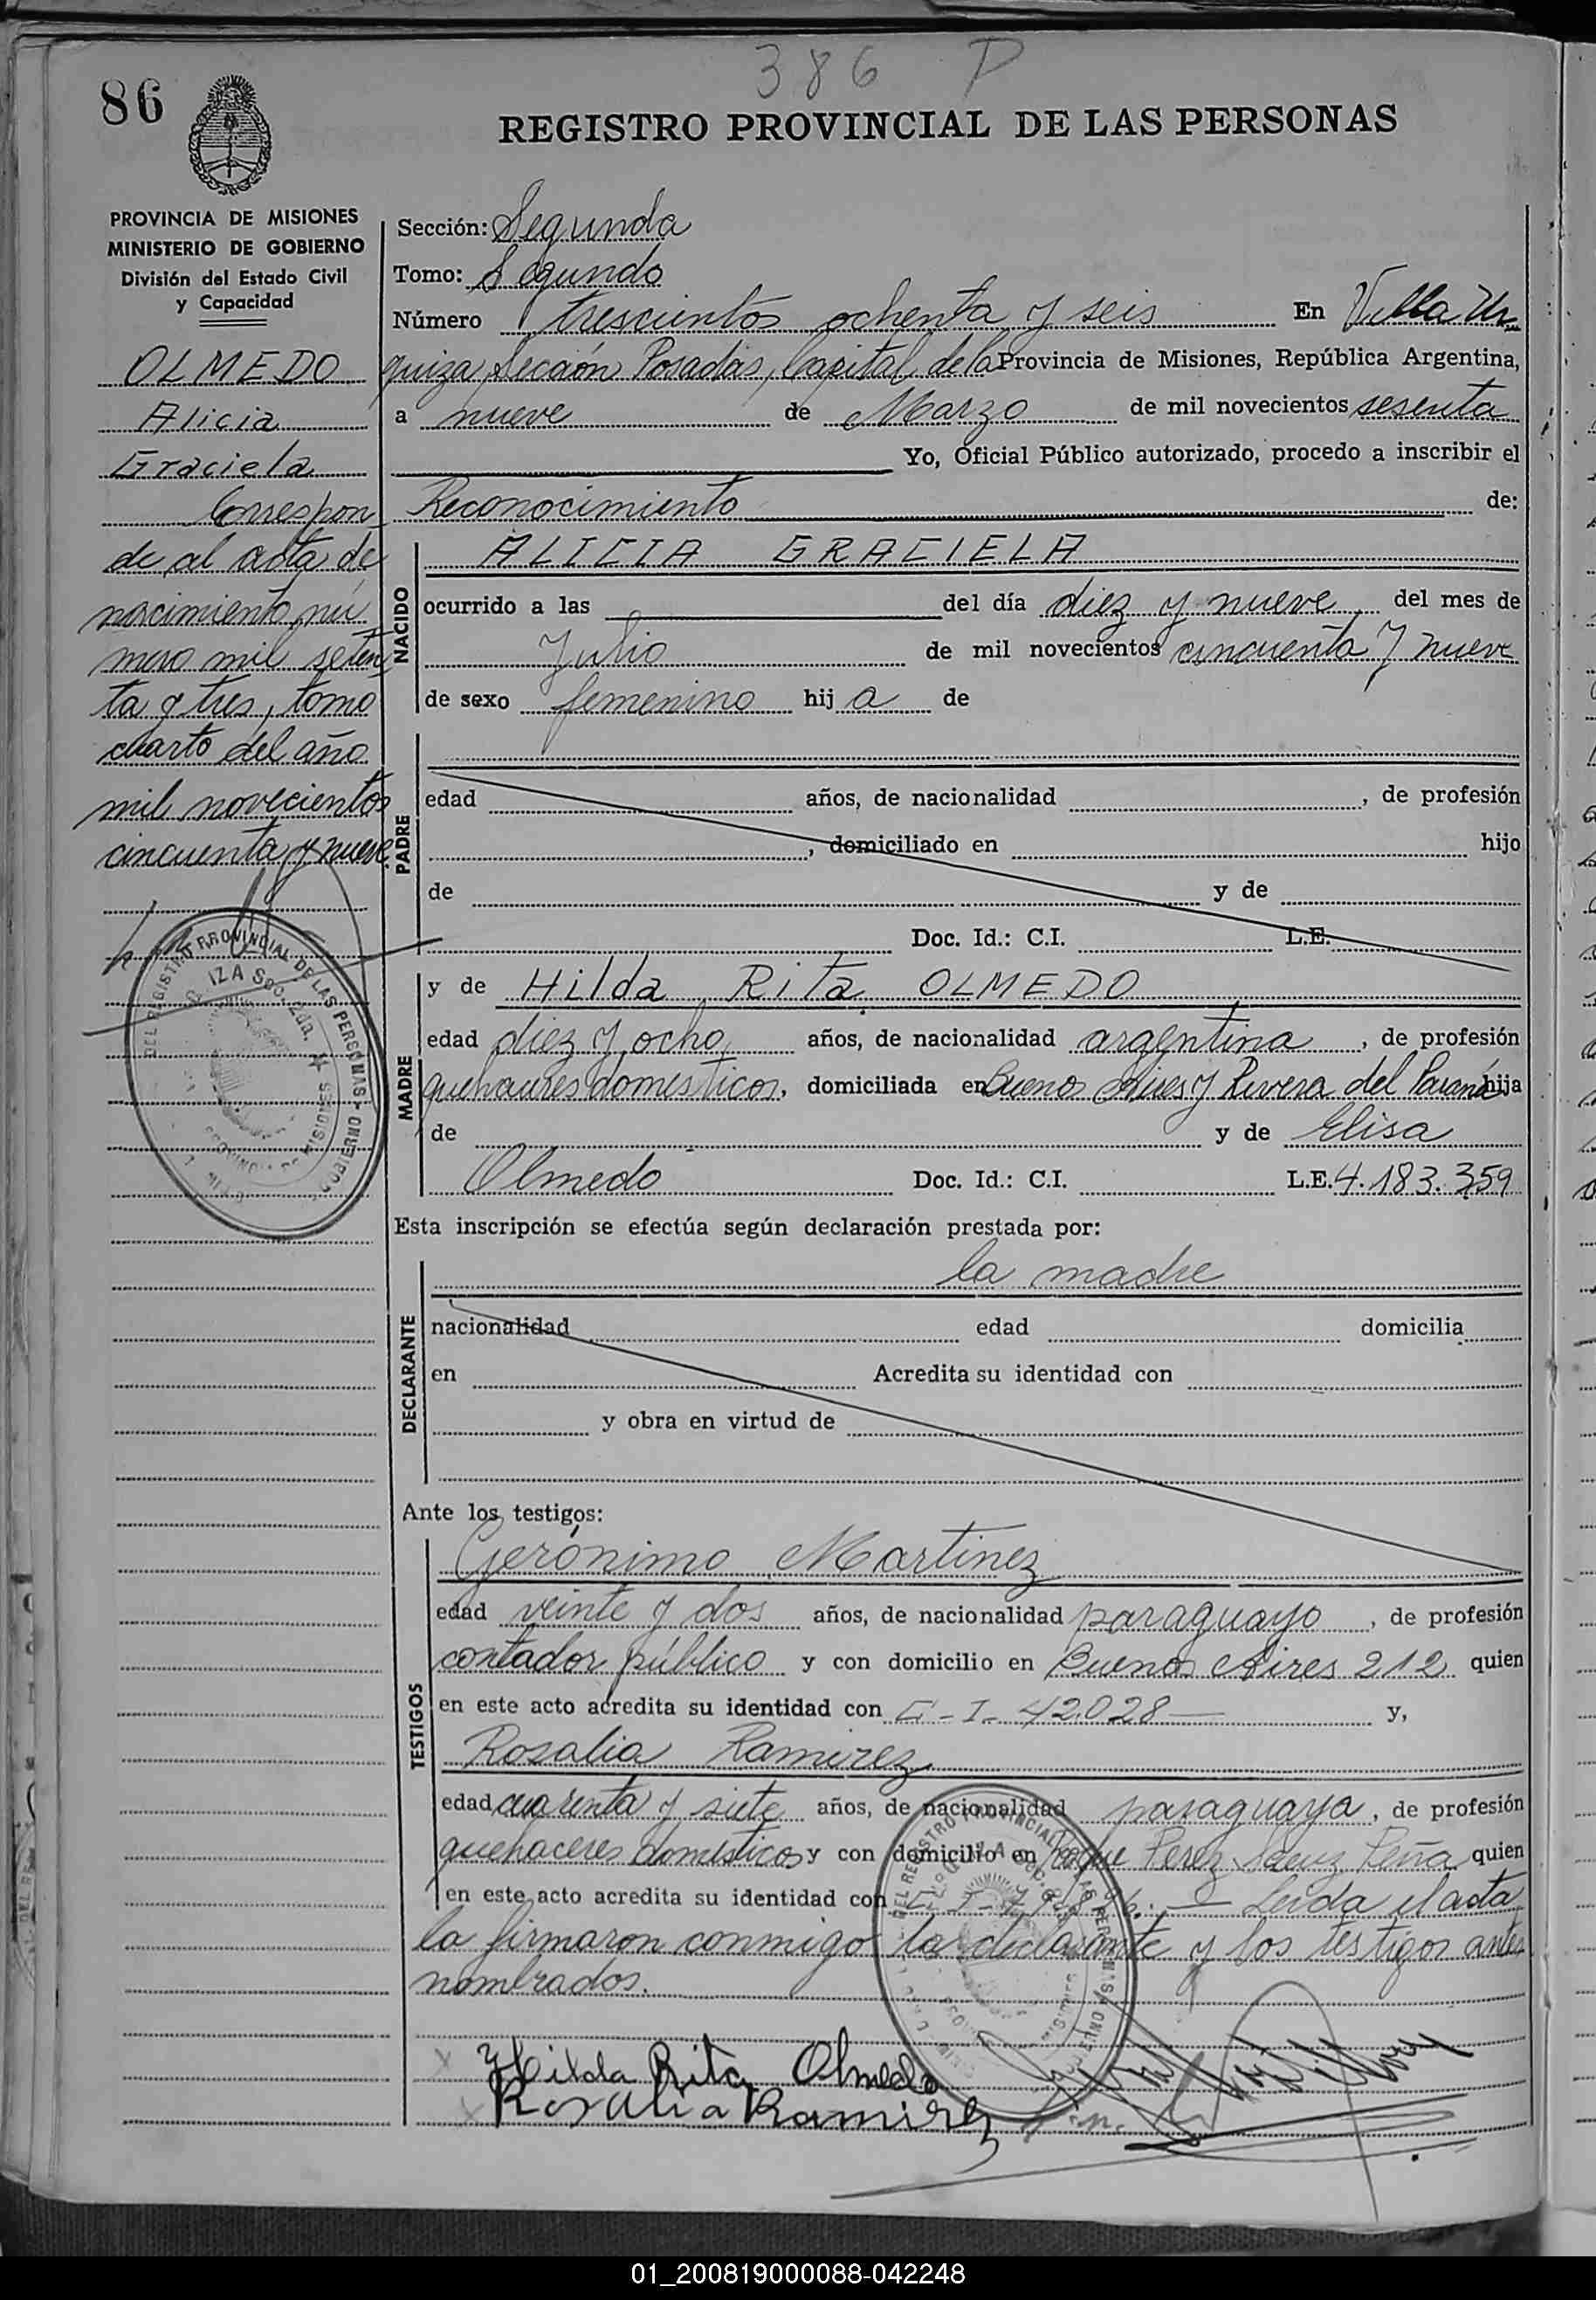 386 D
86
REGISTRO PROVINCIAL DE LAS PERSONAS
PROVINCIA DE MISIONES
MINISTERIO DE GOBIERNO
División del Estado Civil
y Capacidad
OLMEDO
Alicia
Graciela
Correspon
de al acta de
nacimiento nú
mero mil seten
ta y tres, tomo
cuarto del año
mil novecientos
cincuenta y nueve
Sección: Segunda
Tomo: Segundo
Número trescientos ochenta y seis En Villa Ur
quiza Sección Posadas, Capital de la Provincia de Misiones, República Argentina,
a nueve de Marzo de mil novecientos sesenta
Yo, Oficial Público autorizado, procedo a inscribir el
Reconocimiento de:
NACIDO
ALICIA GRACIELA
ocurrido a las del día diez y nueve, del mes de
Julio de mil novecientos cincuenta y nueve
de sexo femenino hija de
PADRE
edad años, de nacionalidad , de profesión
, domiciliado en hijo
de y de
Doc. Id.: C.I. L.E.
MADRE
y de Hilda Rita OLMEDO
edad diez y ocho años, de nacionalidad argentina, de profesión
quehaceres domésticos, domiciliada en Buenos Aires y Rivera del Paraná hija
de y de Elisa
Olmedo Doc. Id.: C.I. L.E. 4.183.359
Esta inscripción se efectúa según declaración prestada por:
DECLARANTE
la madre
nacionalidad edad domicilia
en Acredita su identidad con
y obra en virtud de
Ante los testigos:
TESTIGOS
Gerónimo Martinez
edad veinte y dos años, de nacionalidad paraguayo, de profesión
contador público y con domicilio en Buenos Aires 212 quien
en este acto acredita su identidad con C-I-42.028 y,
Rosalia Ramirez
edad cuarenta y siete años, de nacionalidad paraguaya, de profesión
quehaceres domésticos y con domicilio en Roque Perez Saenz Peña quien
en este acto acredita su identidad con Leida el acta
la firmaron conmigo la declarante y los testigos antes
nombrados.
Hilda Rita Olmedo
Rosalia Ramirez
01_200819000088-042248